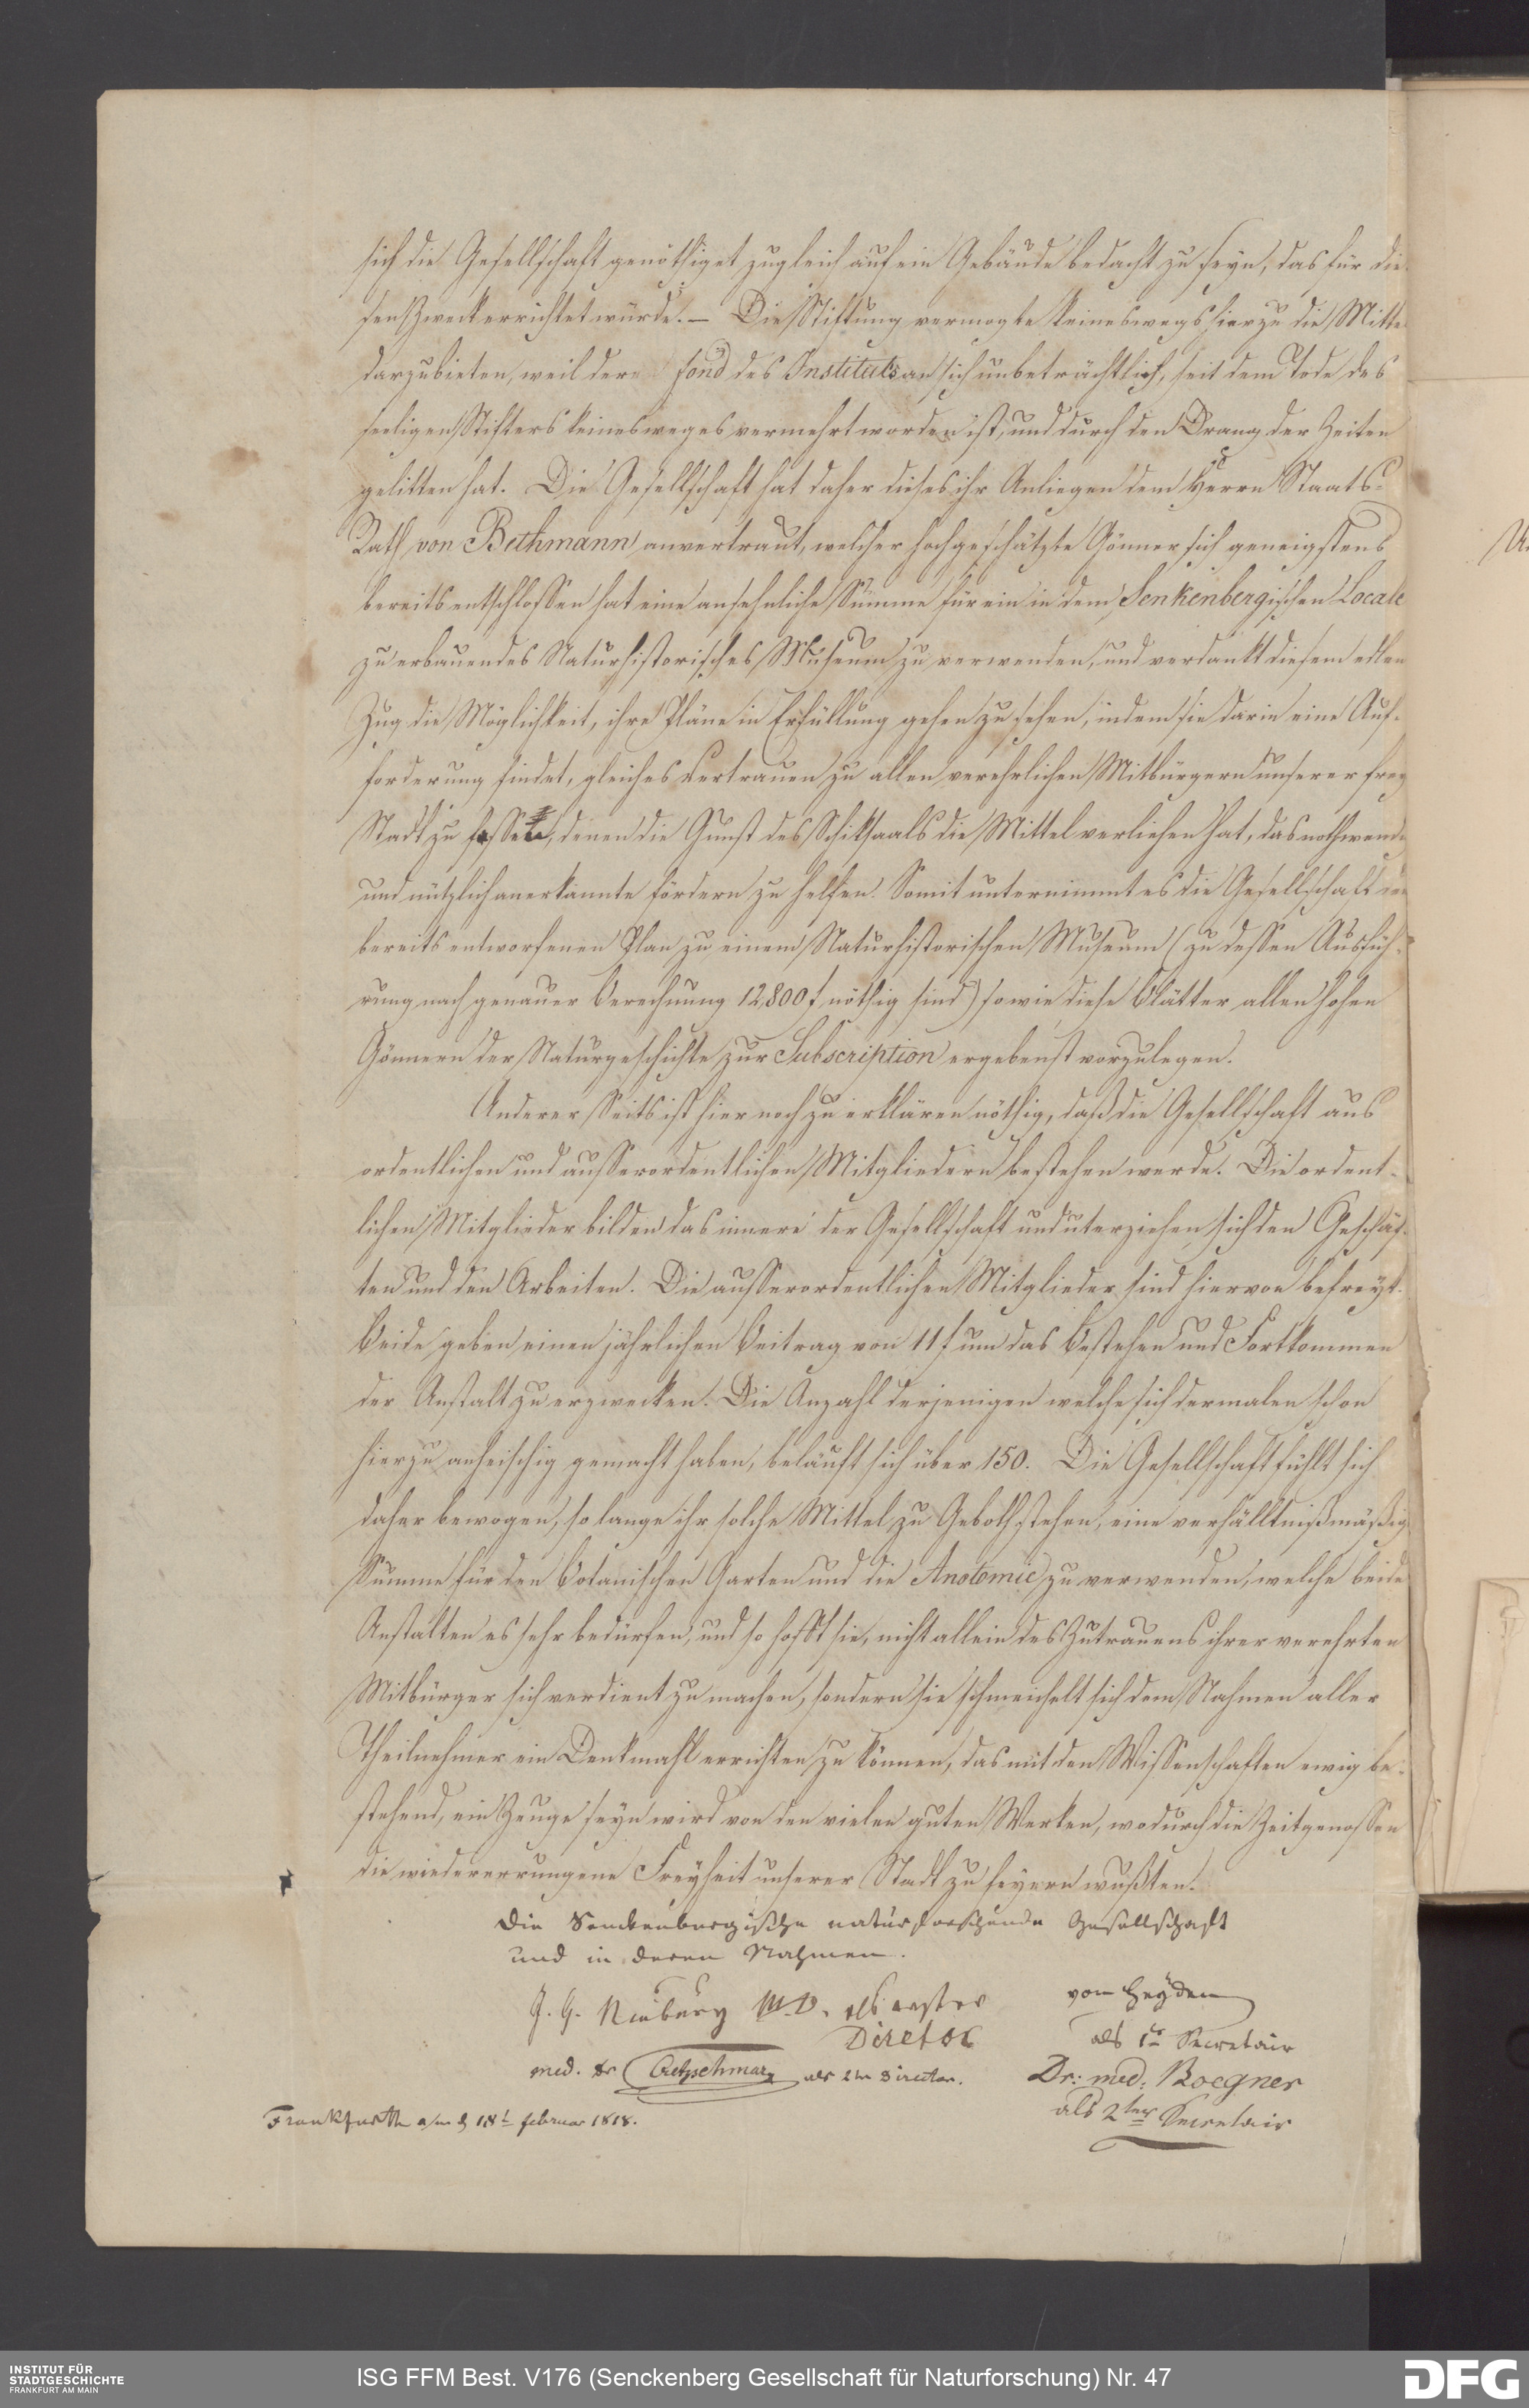 sich die Gesellschaft genöthiget zugleich auf ein Gebäude bedacht zu seyn, das für die-
sen Zweck errichtet würde. – Die Stiftung vermogte keineswegs hierzu die Mitte
darzubieten, weil der fond des Instituts an sich unbeträchtlich, seit dem Tode des
seeligen Stifters keinesweges vermehrt worden ist, und durch den Drang der Zeiten
gelitten hat. Die Gesellschaft hat daher dieses ihr Anliegen dem Herrn Staats-
Rath von Bethmann anvertraut, welcher hochgeschätzte Gönner sich geneigtens
bereits entschlossen hat eine ansehnliche Summe für ein in dem Senkenbergischen Locale
zu erbauendes Naturhistorisches Museum zu verwenden, und verdankt diesem edlen
Zug die Möglichkeit, ihre Pläne in Erfüllung gehen zu sehen, indem sie darin eine Auf-
forderung findet, gleiches Vertrauen zu allen verehrlichen Mitbürgern unserer frey
Stadt zu fassen, denen die Gunst des Schiksaals die Mittel verliehen hat, das nothwend
und nützlich anerkannte fördern zu helfen. Somit unternimmt es die Gesellschaft den
bereits entworfenen Plan zu einem Naturhistorischen Museum (zu dessen Ausfüh-
rung nach genauer Berechnung 12,800 f nöthig sind) sowie diese Blätter allen hohen
Gönnern der Naturgeschichte zur Subscription ergebenst vorzulegen.
Anderer Seits ist hier noch zu erklären nöthig, daß die Gesellschaft aus
ordentlichen und ausserordentlichen Mitgliedern bestehen werde. Die ordent-
lichen Mitglieder bilden das innere der Gesellschaft und unterziehen sich den Geschäf-
ten und den Arbeiten. Die ausserordentlichen Mitglieder sind hiervon befreyt.
Beide geben einen jährlichen Beitrag von 11 f um das Bestehen und Fortkommen
der Anstalt zu erzwecken. Die Anzahl derjenigen welche sich dermalen schon
hierzu anheischig gemacht haben, beläuft sich über 150. Die Gesellschaft fühlt sich
daher bewogen, so lange ihr solche Mittel zu Geboth stehen, eine verhälltnißmäßig
Summe für den Botanischen Garten und die Anatomie zu verwenden, welche beide
Anstalten es sehr bedürfen, und so hofft sie, nicht allein des Zutrauens ihrer verehrten
Mitbürger sich verdient zu machen, sondern sie schmeichelt sich dem Nahmen aller
Theilnehmer ein Denkmahl errichten zu können, das mit den Wissenschaften ewig be-
stehend, ein Zeuge seyn wird von den vielen guten Werken, wodurch die Zeitgenossen
die wiedererrungene Freyheit unserer Stadt zu feyern wußten.
Die Senckenbergische naturforschende Gesellschaft
und in deren Nahmen.
J. G. Neuburg M.D. als erster
Diretor
von Heyden
als 1r Secretair
med. Dr Cretzschmar als 2tr Director.
Dr: med: Boegner
als 2ter Secretair
Frankfurth a/m d 18t februar 1818.
INSTITUT FÜR
STADTGESCHICHTE
FRANKFURT AM MAIN
ISG FFM Best. V176 (Senckenberg Gesellschaft für Naturforschung) Nr. 47
DFG